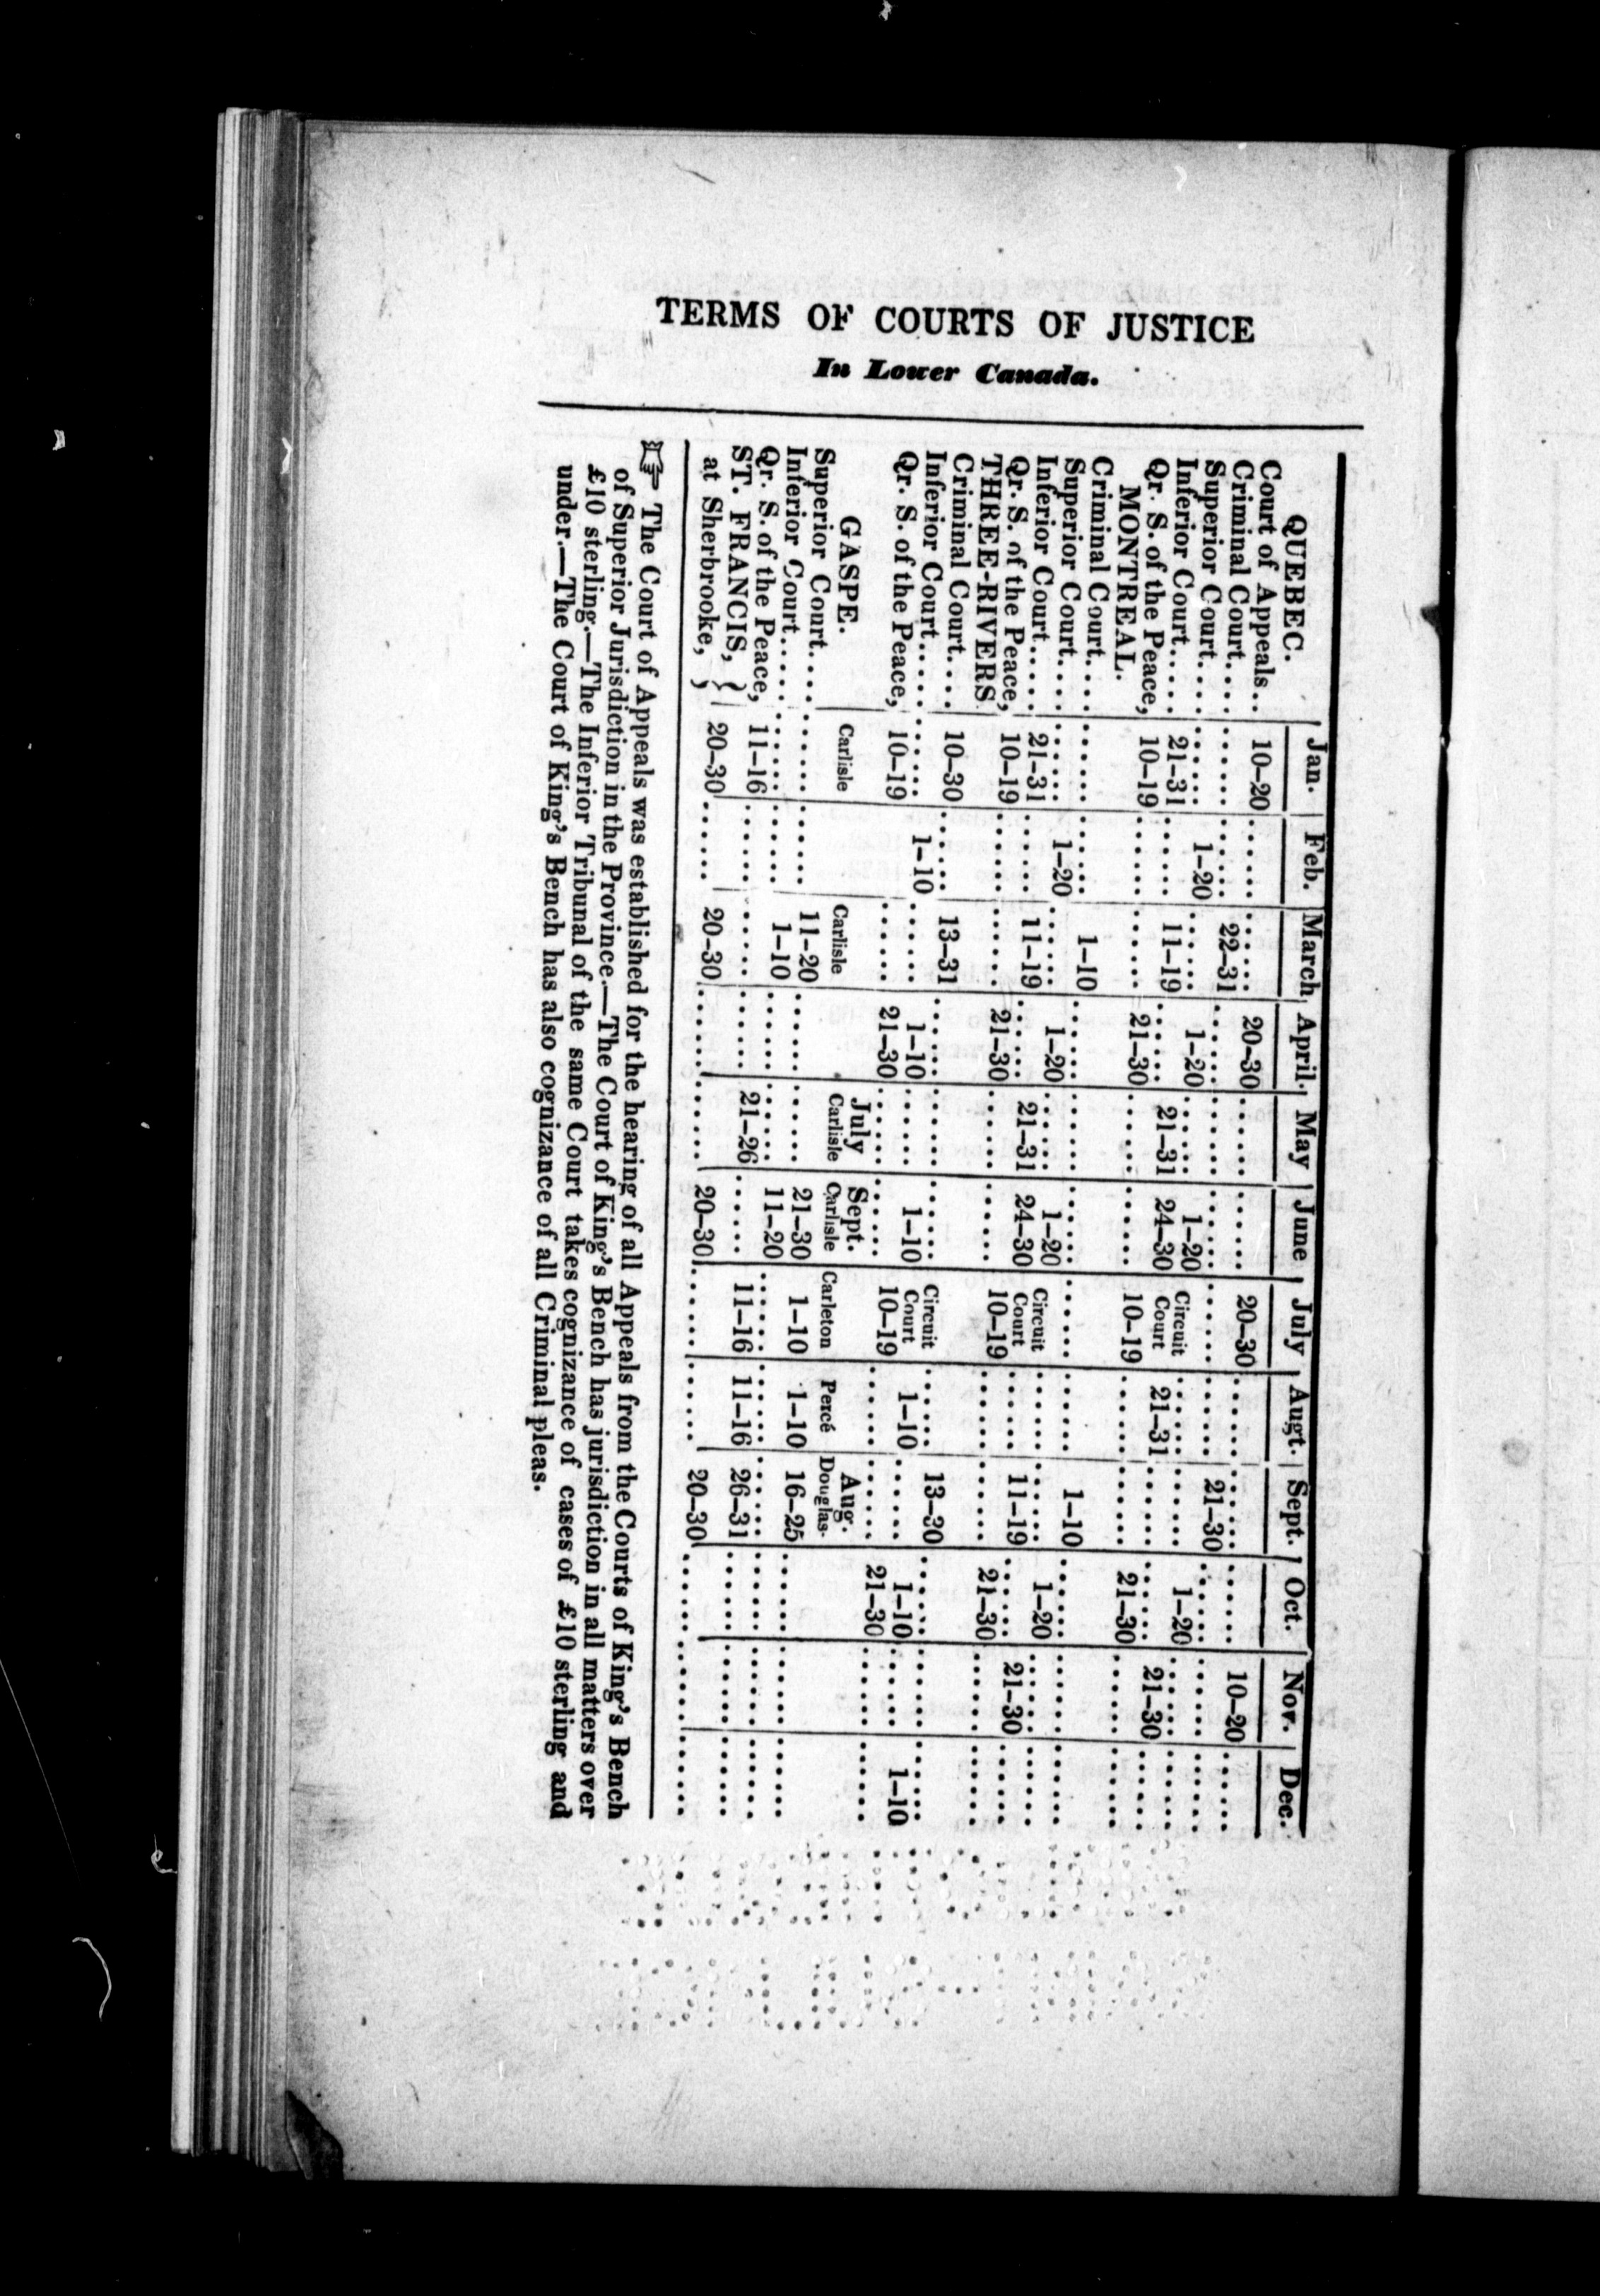 TERMS OF COURTS OF JUSTICE
In Lower Canada.
Jan. Feb. March April. May June July Augt. Sept. Oct. Nov. Dec.
QUEBEC.
Court of Appeals.. 10–20 ...... ...... 20–30 ...... ...... 20–30 ...... ...... ...... 10–20 ......
Criminal Court.... ...... ...... 22–31 ...... ...... ...... ...... ...... 21–30 ...... ...... ......
Superior Court.... ...... 1–20 ...... 1–20 ...... 1–20 Circuit ...... ...... 1–20 ...... ......
Inferior Court.... 21–31 ...... 11–19 ...... 21–31 24–30 Court 21–31 ...... ...... 21–30 ......
Qr. S. of the Peace, 10–19 ...... ...... 21–30 ...... ...... 10–19 ...... ...... 21–30 ...... ......
MONTREAL.
Criminal Court.... ...... ...... 1–10 ...... ...... ...... ...... ...... 1–10 ...... ...... ......
Superior Court.... ...... 1–20 ...... 1–20 ...... 1–20 Circuit ...... ...... 1–20 ...... ......
Inferior Court..... 21–31 ...... 11–19 ...... 21–31 24–30 Court ...... 11–19 ...... 21–30 ......
Qr. S. of the Peace, 10–19 ...... ...... 21–30 ...... ...... 10–19 ...... ...... 21–30 ...... ......
THREE-RIVERS
Criminal Court.... 10–30 ...... 13–31 ...... ...... ...... Circuit ...... 13–30 ...... ...... ......
Inferior Court..... ...... 1–10 ...... 1–10 ...... 1–10 Court 1–10 ...... 1–10 ...... 1–10
Qr. S. of the Peace, 10–19 ...... ...... 21–30 ...... ...... 10–19 ...... ...... 21–30 ...... ......
July Sept. Aug.
GASPE. Carlisle Carlisle Carlisle Carlisle Carleton Percé Douglas.
Superior Court.... ...... ...... 11–20 ...... ...... 21–30 1–10 1–10 16–25 ...... ...... ......
Inferior Court..... ...... ...... 1–10 ...... ...... 11–20 ...... ...... ...... ...... ...... ......
Qr. S. of the Peace, 11–16 ...... ...... ...... 21–26 ...... 11–16 11–16 26–31 ...... ...... ......
ST. FRANCIS, }
at Sherbrooke, } 20–30 ...... 20–30 ...... ...... 20–30 ...... ...... 20–30 ...... ...... ......
☞ The Court of Appeals was established for the hearing of all Appeals from the Courts of King's Bench
of Superior Jurisdiction in the Province.—The Court of King's Bench has jurisdiction in all matters over
£10 sterling.—The Inferior Tribunal of the same Court takes cognizance of cases of £10 sterling and
under.—The Court of King's Bench has also cognizance of all Criminal pleas.